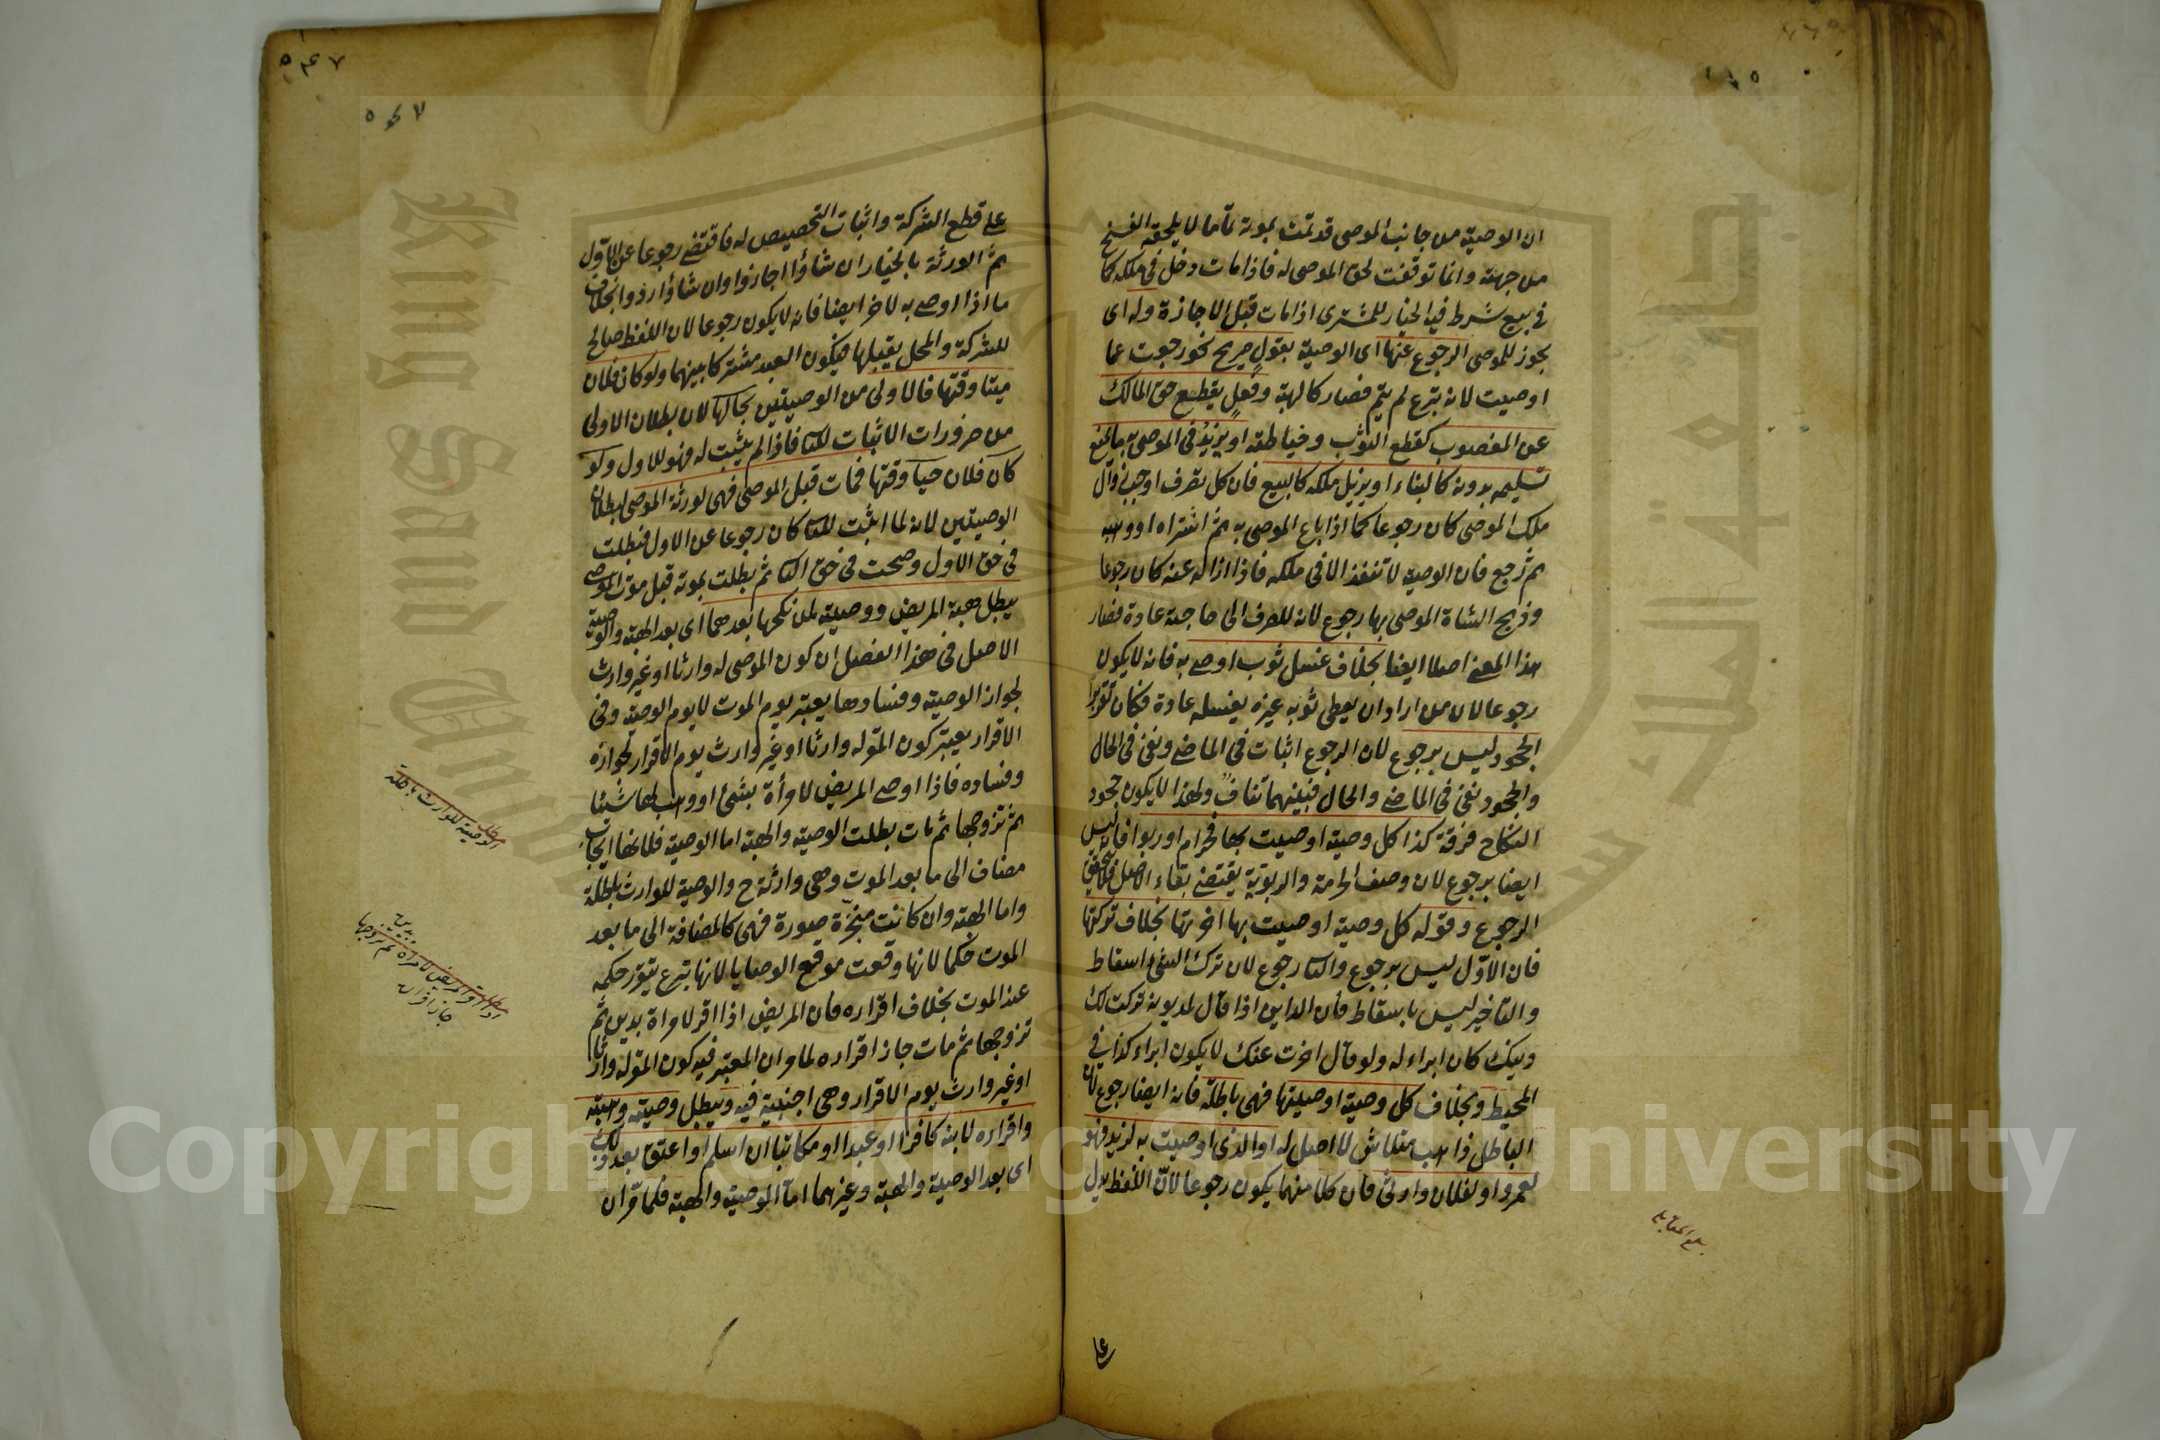 ان الوصية من جانب الموصى قد تمت بموته تاما لا يلحقه الفسخ
من جهته وانما توقفت لحق الموصى له فاذا مات دخل فى ملكه كما
فى بيع شرط فيه الخيار للمشترى اذا مات قبل الاجازة وله اى
يجوز للموصى الرجوع عنها اى الوصية بقول صريح نحو رجوت عما
اوصيت لانه تبرع لم يتم فصار كالهبة وفعل يقطع حق المالك
عن المغصوب كقطع الثوب وخياطته او يزيد فى الموصى به ما يمنع
تسليمه بدونه كالبناء او يزيل ملكه كالبيع فان كل تصرف اوجب زوال
ملك الموصى كان رجوعا كما اذا باع الموصى به ثم اشتراه او وهبه
ثم رجع فان الوصية لا تنفذ الا فى ملكه فاذا ازاله عنه كان رجوعا
وذبح الشاة الموصى بها رجوع لانه للصرف الى حاجته عادة فصار
هذا المعنى اصلا ايضا بخلاف غسل ثوب اوصى به فانه لا يكون
رجوعا لان من اراد ان يعطى ثوبه غيره يغسله عادة فكان تقريرا
الجحود ليس برجوع لان الرجوع اثبات فى الماضى ونفى فى الحال
والجحود نفى فى الماضى والحال فبينهما تناف ولهذا لا يكون جحود
النكاح فرقة كذا كل وصية اوصيت بها فحرام او ربوا فانه ليس
ايضا برجوع لان وصف الحرمة والربوية يقتضى بقاء الاصل فلا يتحقق
الرجوع وقوله كل وصية اوصيت بها اخرتها بخلاف تركتها
فان الاول ليس برجوع والثا رجوع لان ترك الشئ اسقاط
والتاخير ليس باسقاط فان الداين اذا قال لمديونه تركت لك
دينك كان ابراء له ولو قال اخرت عنك لا يكون ابراء كذا فى
المحيط وبخلاف كل وصية اوصيتها فهى باطلة فانه ايضا رجوع لان
الباطل ذاهب متلاش لا اصل له او الذى اوصيت به لزيد فهو
لعمرو او لفلان وارثى فان كلا منهما يكون رجوعا لان اللفظ يدل
بلغ المقابلة
على
على قطع الشركة واثبات التخصيص له فاقتضى رجوعا عن الاول
ثم الورثة بالخيار ان شاؤا اجازوا وان شاؤا ردوا بخلاف
ما اذا اوصى به لاخر ايضا فانه لا يكون رجوعا لان اللفظ صالح
للشركة والمحل يقبلها فيكون العبد مشتركا بينهما ولو كان فلان
ميتا وقتها فالاولى من الوصيتين بحالها لان بطلان الاولى
من ضرورات الاثبات للثا فاذا لم يثبت له فهو للاول ولو
كان فلان حيا وقتها فمات قبل الموصى فهى لورثة الموصى لبطلان
الوصيتين لانه لما اثبت للثا كان رجوعا عن الاول فبطلت
فى حق الاول وصحت فى حق الثا ثم بطلت بموته قبل موت الموصى
يبطل هبة المريض ووصيته لمن نكحها بعدهما اى بعد الهبة والوصية
الاصل فى هذا الفصل ان كون الموصى له وارثا او غير وارث
لجواز الوصية وفسادها يعتبر يوم الموت لا يوم الوصية وفى
الاقرار يعتبر كون المقر له وارثا او غير وارث يوم الاقرار لجوازه
وفساده فاذا اوصى المريض لامرأة بشئ او وهب لها شيئا
ثم تزوجها ثم مات بطلت الوصية والهبة اما الوصية فلانها ايجاب
مضاف الى ما بعد الموت وهى وارثة ح والوصية للوارث باطلة
واما الهبة وان كانت منجزة صورة فهى كالمضافة الى ما بعد
الموت حكما لانها وقعت موقع الوصايا لانها تبرع يتقرر حكمه
عند الموت بخلاف اقراره فان المريض اذا اقر لامراة بدين ثم
تزوجها ثم مات جاز اقراره لما مر ان المعتبر فيه كون المقر له وارثا
او غير وارث يوم الاقرار وهى اجنبية فيه ويبطل وصيته وهبته
واقراره لابنه كافرا او عبدا او مكاتبا ان اسلم او اعتق بعد ذلك
اى بعد الوصية والهبة وغيرهما اما الوصية والهبة فلما مر ان
مطلب
الوصية للوارث باطلة
مطلب
اذا اقر المريض لامراة ثم تزوجها
جاز اقراره
٥٤٧
Copyright © King Saud University